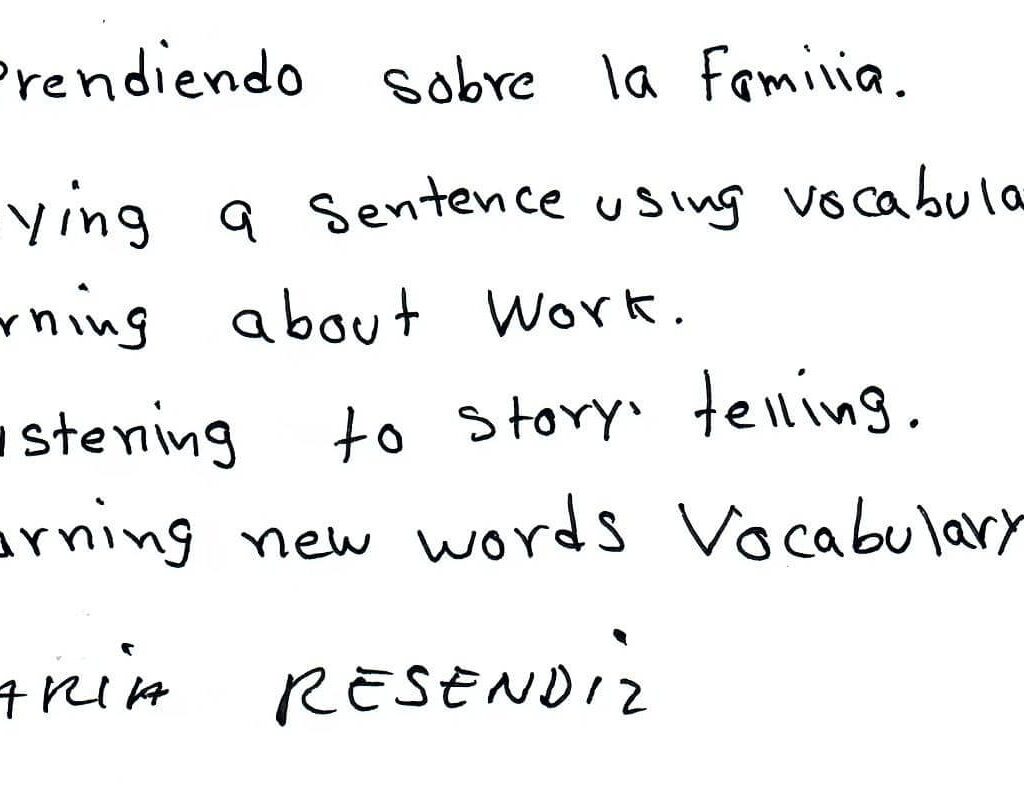 prendiendo sobre la Familia.
ying a sentence using vocabula
rning about work.
istening to story telling.
arning new words Vocabulary
ARIA RESENDIZ